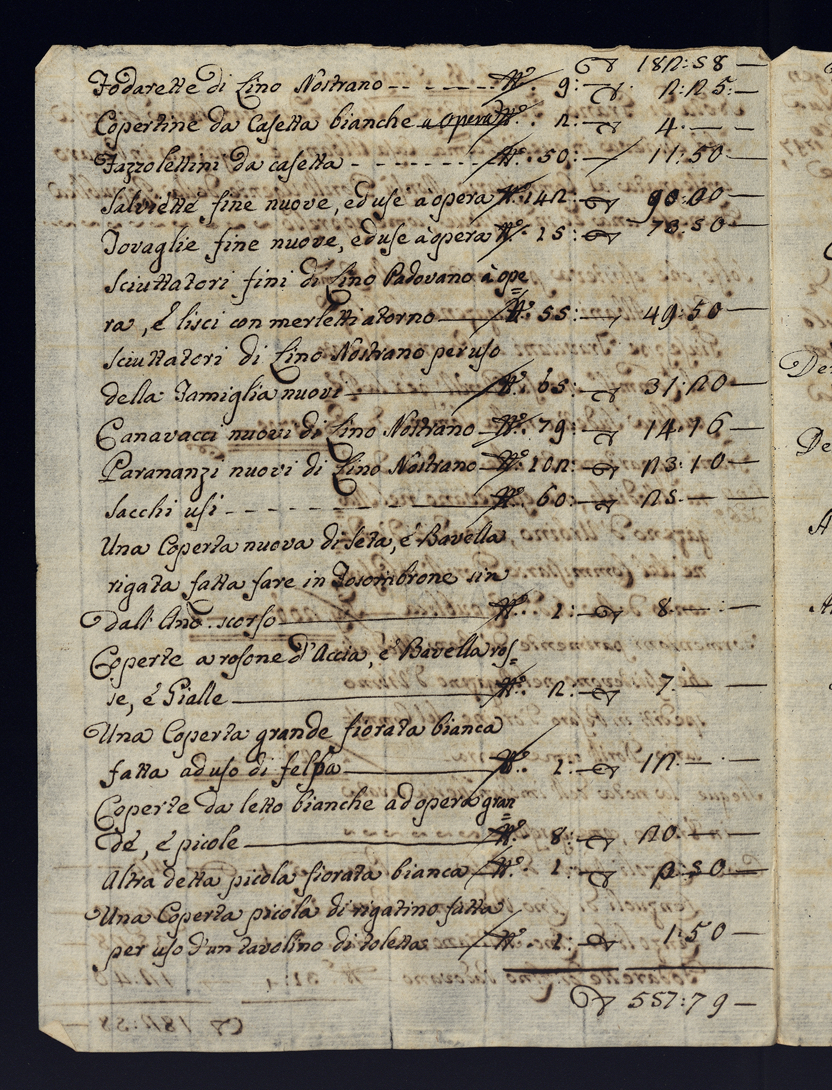 182:58 —
Fodarette di Lino Nostrano - - - - - - N°. 9: — 2:25: —
Copertine da Casetta bianche a opera N°. 2: — 4 — —
Fazzolettini da casetta - - - - - - - - N°. 50: — 11:50 —
Salviette fine nuove, ed use a opera N°. 142: — 90:00 —
Tovaglie fine nuove, ed use à opera N°. 15: — 73:50 —
Sciuttatori fini di Lino Padovano à ope=
ra, é lisci con merletti atorno — N°. 55: — 49:50 —
Sciuttatori di Lino Nostrano per uso
della Famiglia nuovi — N°. 65: — 31:20 —
Canavacci nuovi di Lino Nostrano — N°. 79: — 14:16 —
Parananzi nuovi di Lino Nostrano — N°. 102: — 23:10 —
Sacchi usi - - - - - N°. 60: — 25 — —
Una Coperta nuova di Seta, é Bavella
rigata fatta fare in Fosombrone sin
dall'Ano scorso — N°. 1: — 8 — —
Coperte a rosone d'Accia, é Bavella ros=
se, é Gialle — N°. 2: — 7 — —
Una Coperta grande fiorata bianca
fatta ad uso di felpa — N°. 1: — 12 — —
Coperte da letto bianche ad opera gran=
de, é picole — N°. 8: — 20 — —
Altra detta picola fiorata bianca — N°. 1: — 2:50 —
Una Coperta picola di rigatino fatta
per uso d'un tavolino di toletta — N°. 1: — 1:50 —
557:79 —